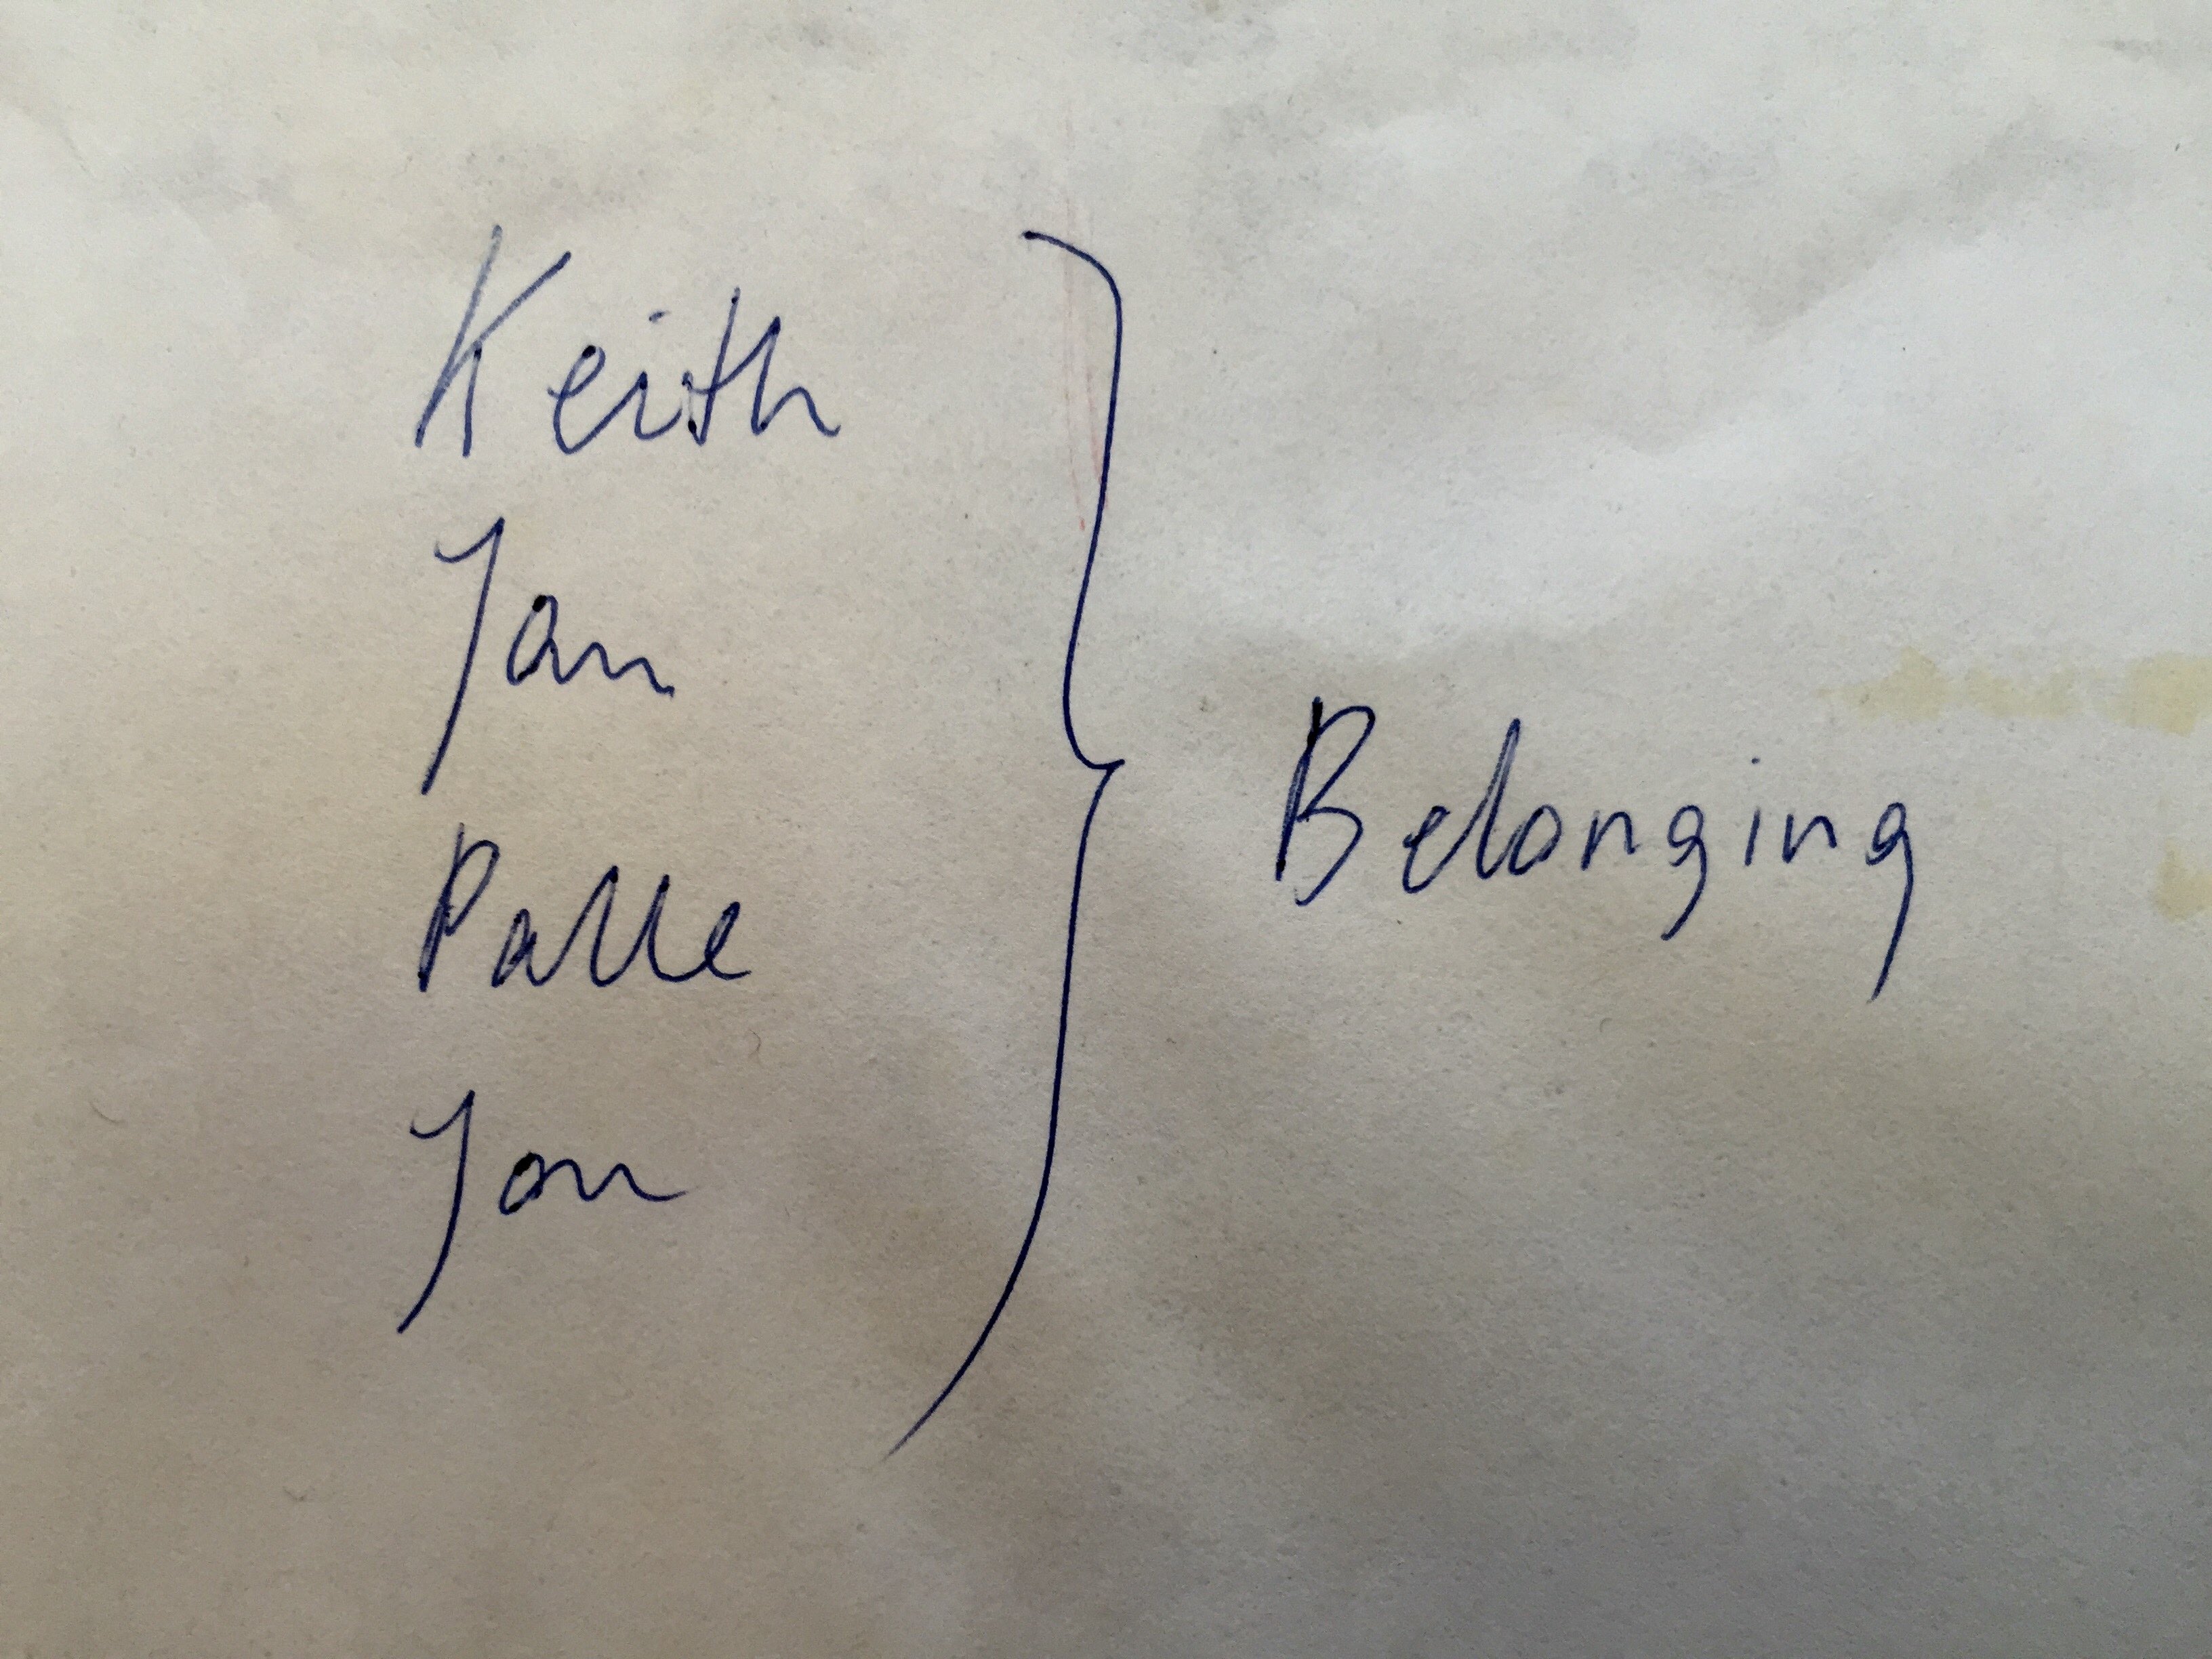 Keith
Jan
Palle
Jon
Belonging